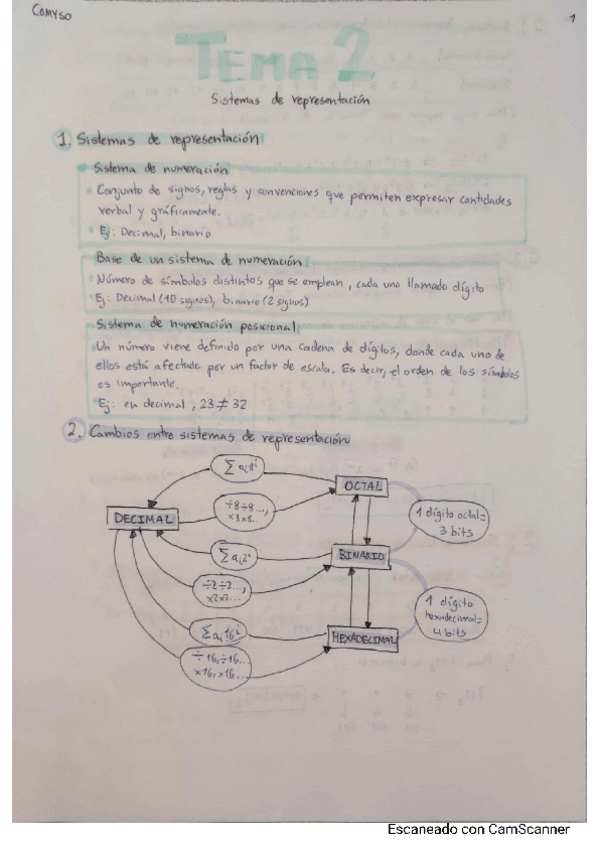 COMYSO
1
TEMA 2
Sistemas de representación
1. Sistemas de representación
Sistema de numeración
Conjunto de signos, reglas y convenciones que permiten expresar cantidades
verbal y gráficamente.
Ej: Decimal, binario
Base de un sistema de numeración
Número de símbolos distintos que se emplean, cada uno llamado dígito
Ej: Decimal (10 signos), binario (2 signos)
Sistema de numeración posicional
Un número viene definido por una cadena de dígitos, donde cada uno de
ellos está afectado por un factor de escala. Es decir, el orden de los símbolos
es importante.
Ej: en decimal, 23 ≠ 32
2. Cambios entre sistemas de representación
Σ aᵢ8ⁱ
OCTAL
÷8÷8...,
×8×8...
DECIMAL
1 dígito octal=
3 bits
Σ aᵢ2ⁱ
BINARIO
÷2÷2...,
×2×2...
1 dígito
hexadecimal=
4 bits
Σ aᵢ16ⁱ
HEXADECIMAL
÷16,÷16...
×16,×16...
Escaneado con CamScanner